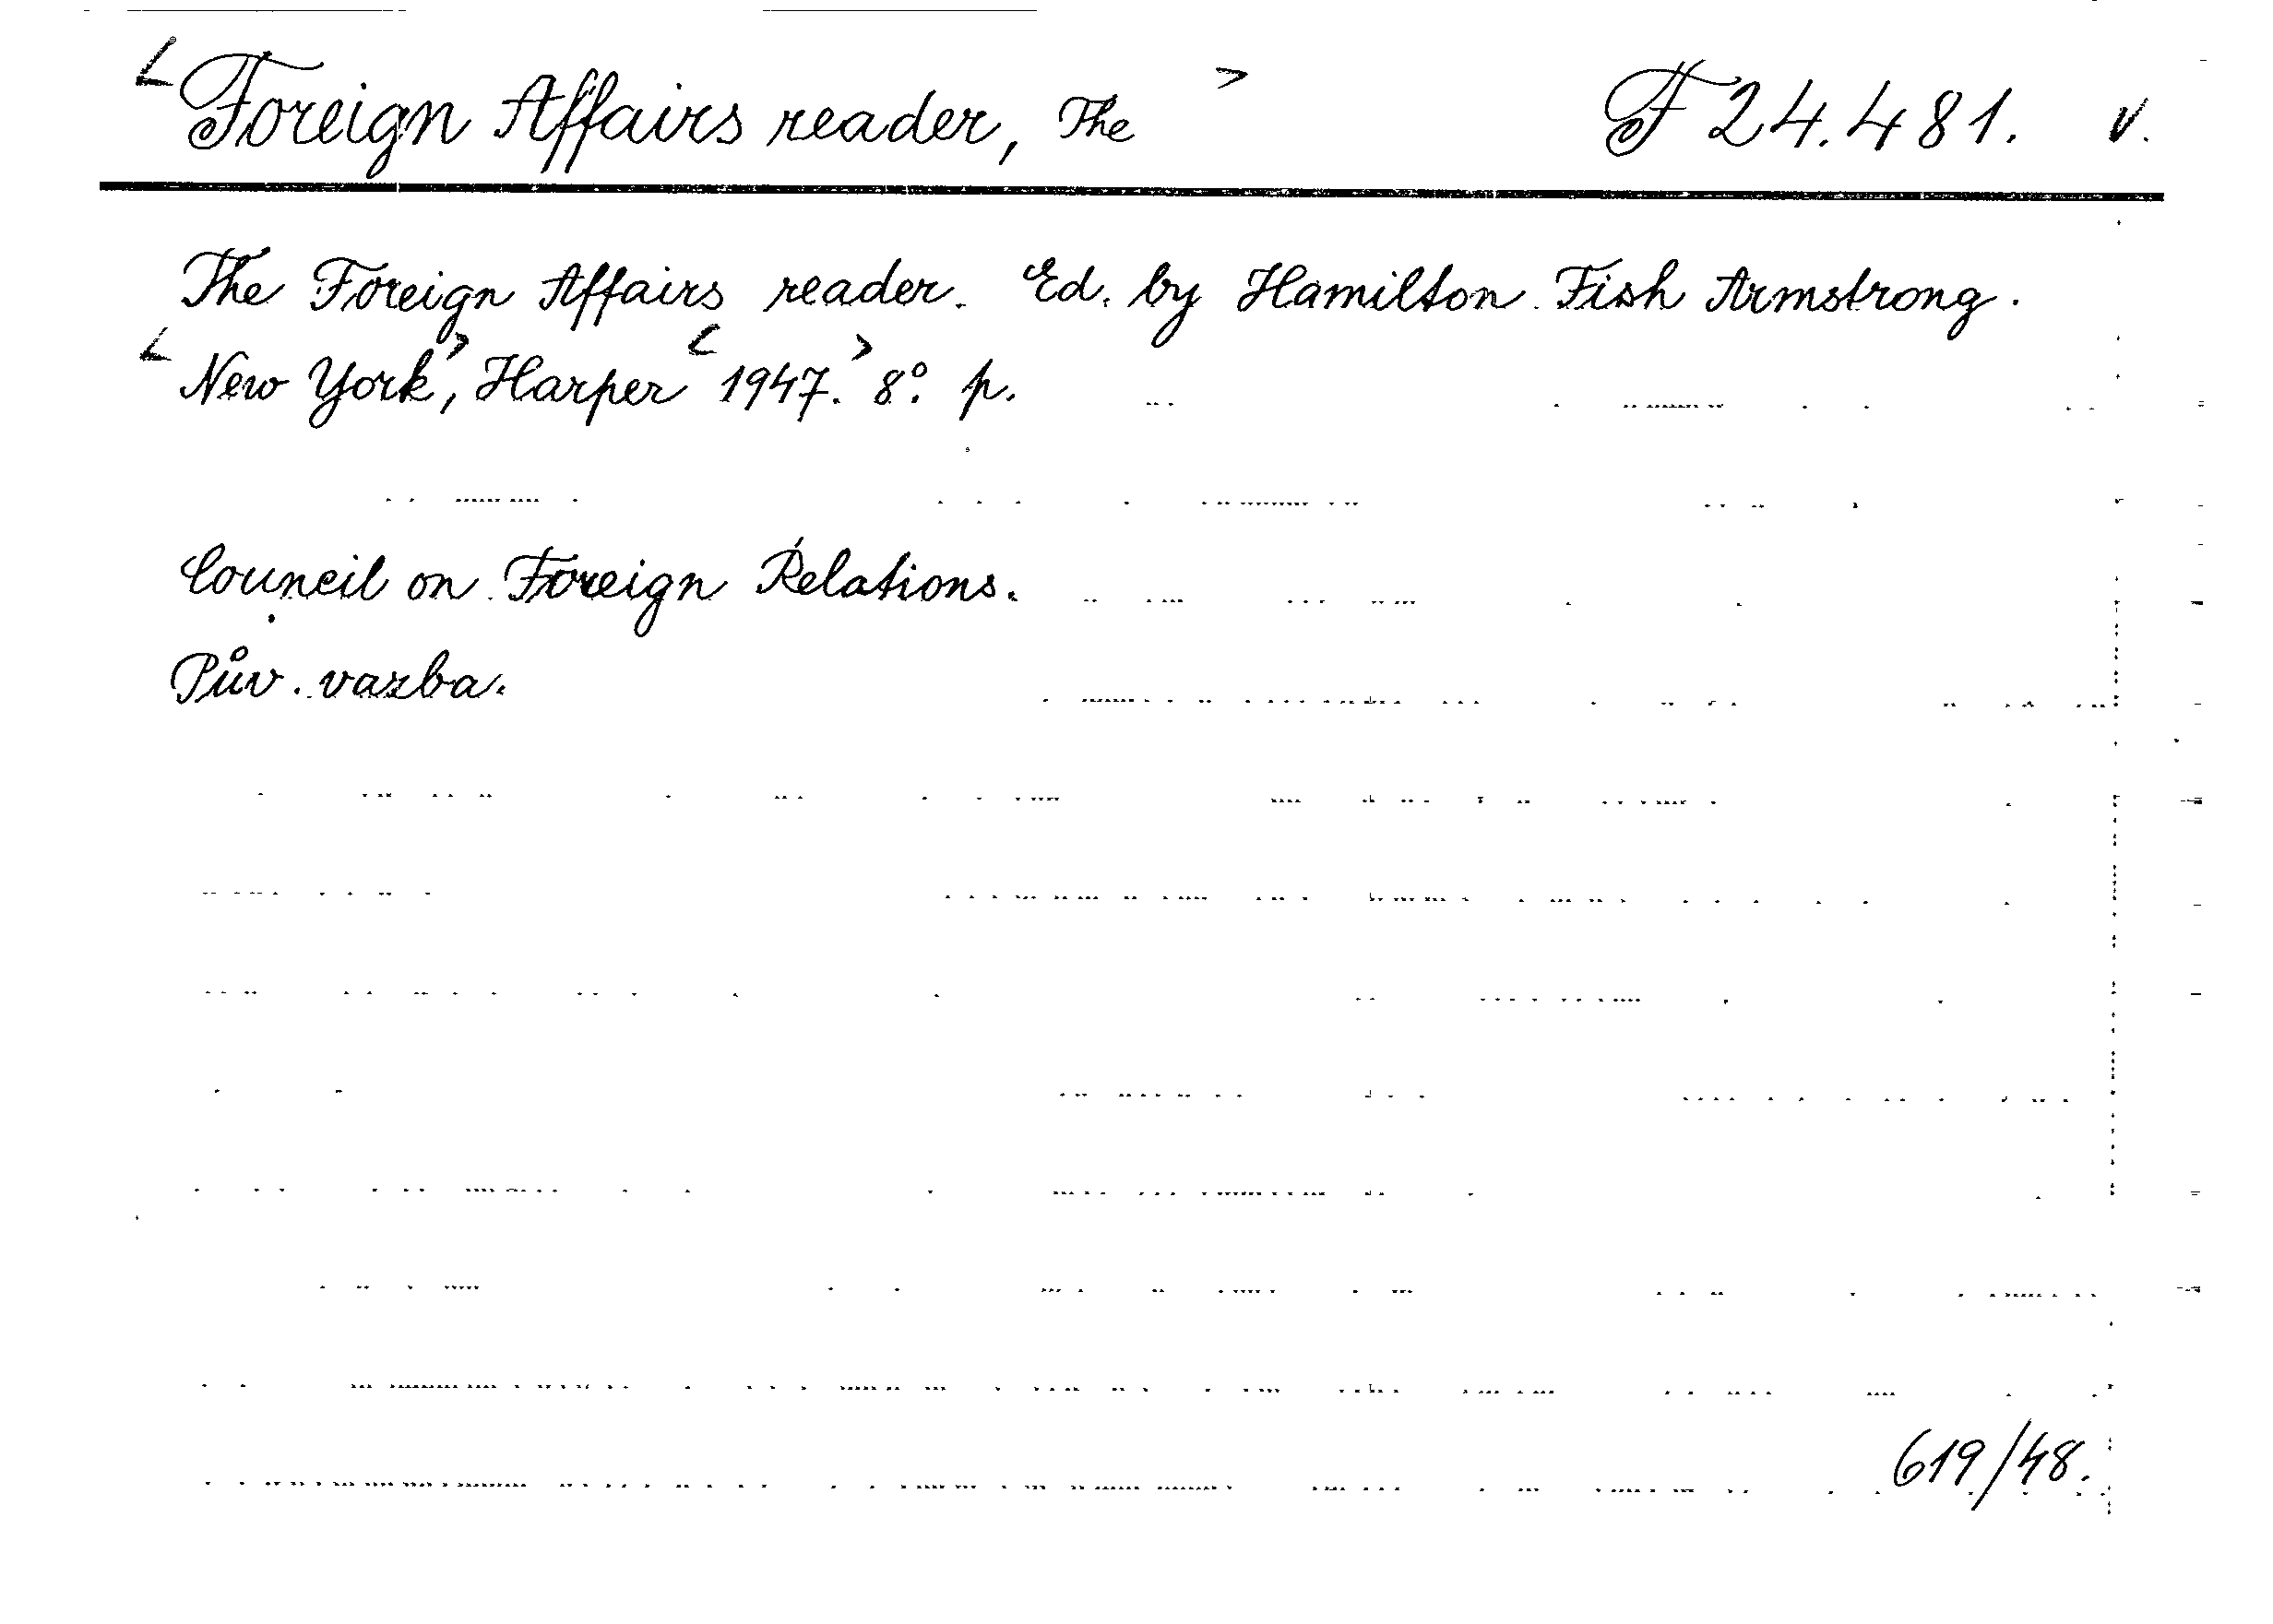 <Foreign Affairs reader, The> F 24.481. V.
The Foreign Affairs reader. Ed. by Hamilton Fish Armstrong.
<New York>, Harper <1947.> 8° p.
Council on Foreign Relations.
Pův. vazba.
619/48.